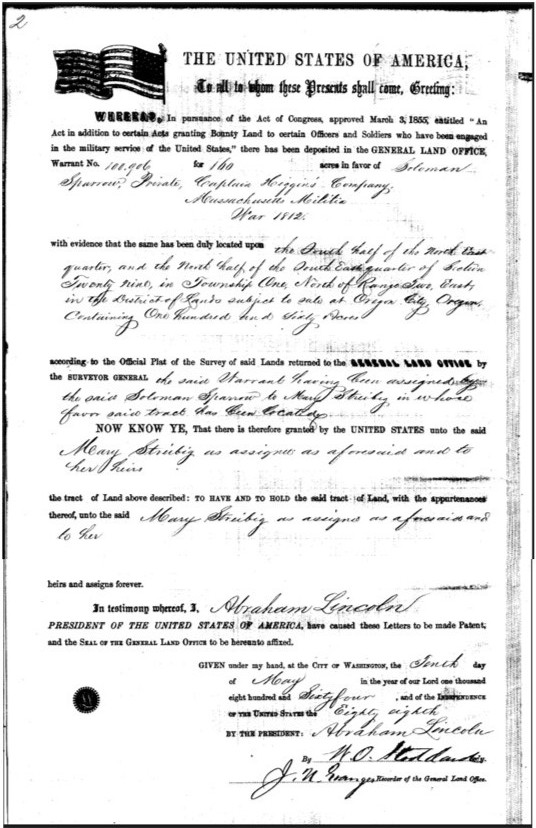 2
THE UNITED STATES OF AMERICA,
To all to whom these Presents shall come, Greeting:
WHEREAS, In pursuance of the Act of Congress, approved March 3, 1855, entitled "An
Act in addition to certain Acts granting Bounty Land to certain Officers and Soldiers who have been engaged
in the military service of the United States," there has been deposited in the GENERAL LAND OFFICE,
Warrant No. 100,906 for 160 acres in favor of Soloman
Sparrow, Private, Captain Higgin's Company,
Massachusetts Militia
War 1812.
with evidence that the same has been duly located upon the South half of the North East
quarter, and the North half of the South East quarter of Section
Twenty Nine, in Township One, North of Range Two, East,
in the District of Lands subject to sale at Oregon City, Oregon,
Containing One hundred and Sixty Acres
according to the Official Plat of the Survey of said Lands returned to the GENERAL LAND OFFICE by
the SURVEYOR GENERAL the said Warrant having been assigned by
the said Soloman Sparrow to Mary Streibig in whose
favor said tract has been located,
NOW KNOW YE, That there is therefore granted by the UNITED STATES unto the said
Mary Streibig as assignee as aforesaid and to
her heirs
the tract of Land above described: TO HAVE AND TO HOLD the said tract of Land, with the appurtenances
thereof, unto the said Mary Streibig as assignee as aforesaid and
to her
heirs and assigns forever.
In testimony whereof, I, Abraham Lincoln
PRESIDENT OF THE UNITED STATES OF AMERICA, have caused these Letters to be made Patent,
and the SEAL OF THE GENERAL LAND OFFICE to be hereunto affixed.
GIVEN under my hand, at the CITY OF WASHINGTON, the Tenth day
of May in the year of our Lord one thousand
eight hundred and Sixty four, and of the INDEPENDENCE
OF THE UNITED STATES the Eighty eighth
BY THE PRESIDENT: Abraham Lincoln
By W. O. Stoddard
J. N. Granger Recorder of the General Land Office.